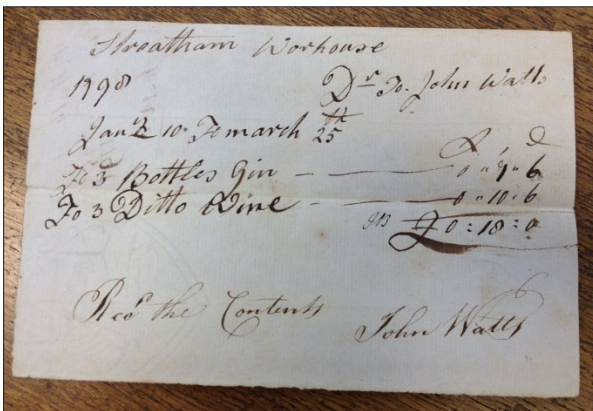 Streatham Worhouse
1798 Dr To John Watts
Janry 10 To march 25th
£ , D
To 3 Bottles Gin 0 " 7 " 6
To 3 Ditto Wine 0 " 10 " 6
£ 0 : 18 : 0
Recd the Contents John Watts